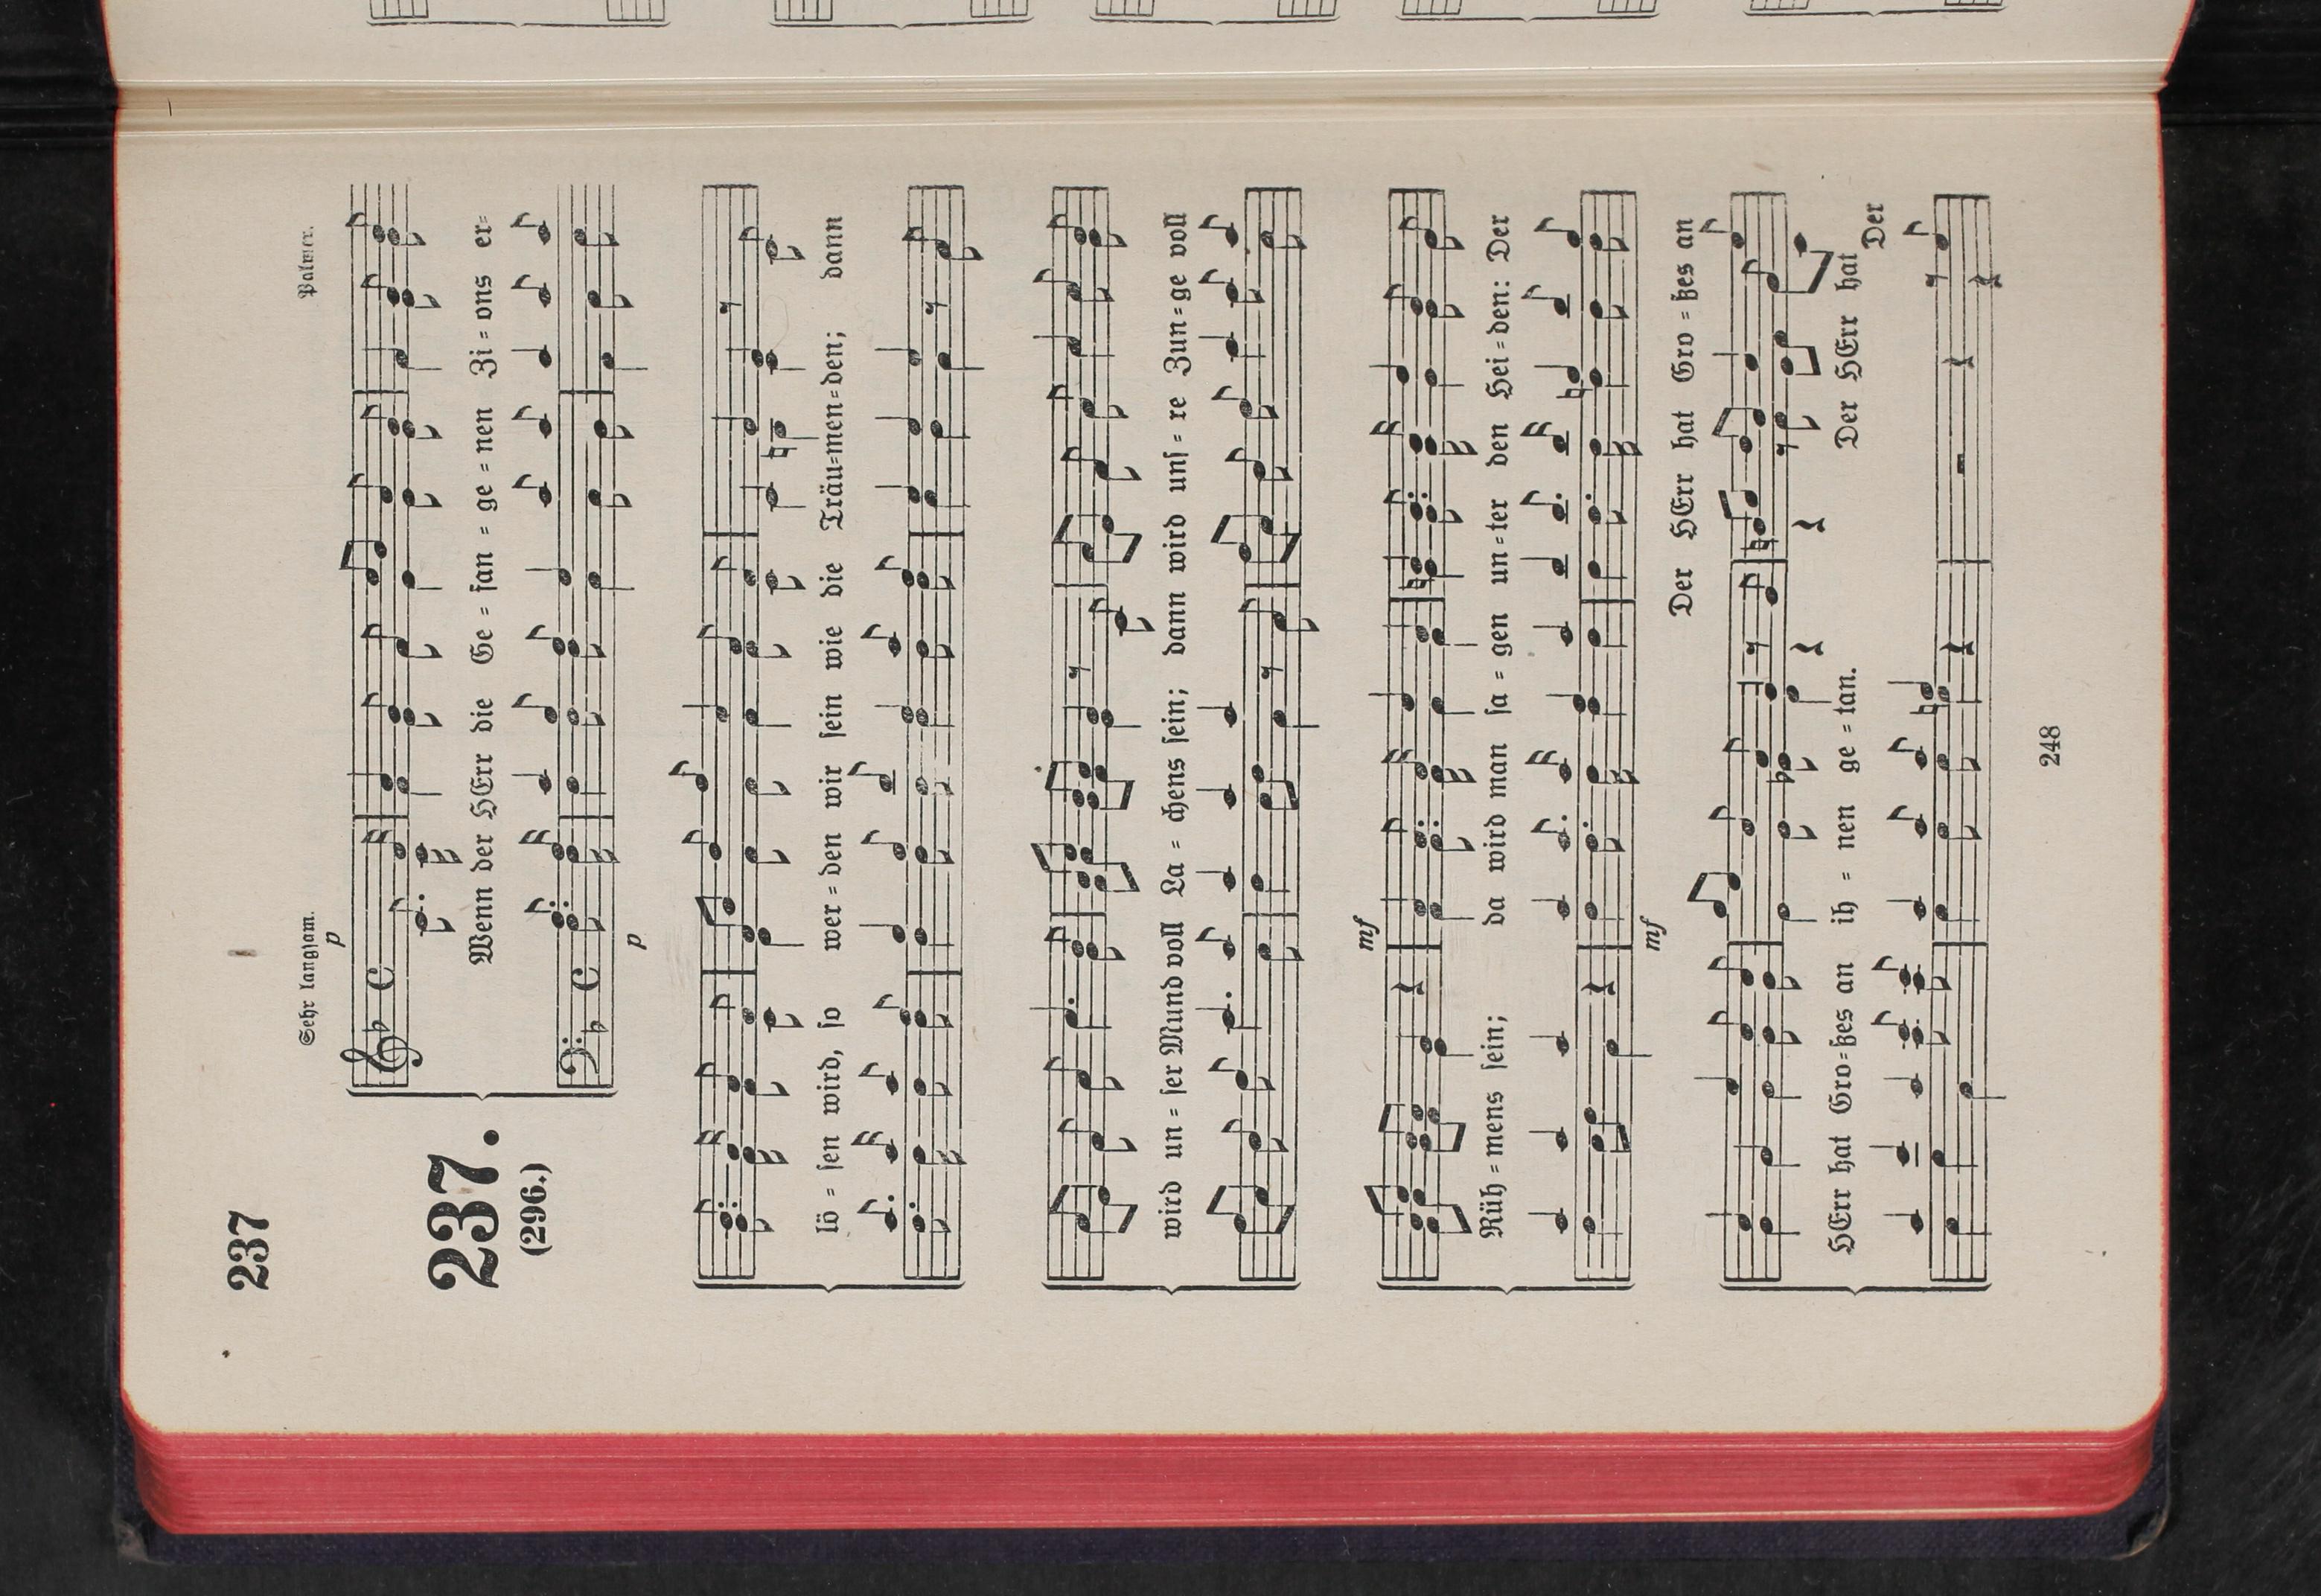 237
Sehr langsam.
Palmer.
237.
(296.)
p
Wenn der HErr die Ge = fan = ge = nen Zi = ons er=
p
lö = sen wird, so wer = den wir sein wie die Träu=men=den; dann
wird un = ser Mund voll La = chens sein; dann wird uns = re Zun = ge voll
mf
Rüh = mens sein; da wird man sa = gen un = ter den Hei = den: Der
mf
Der HErr hat Gro = ßes an
HErr hat Gro = ßes an ih = nen ge = tan. Der HErr hat
Der
248